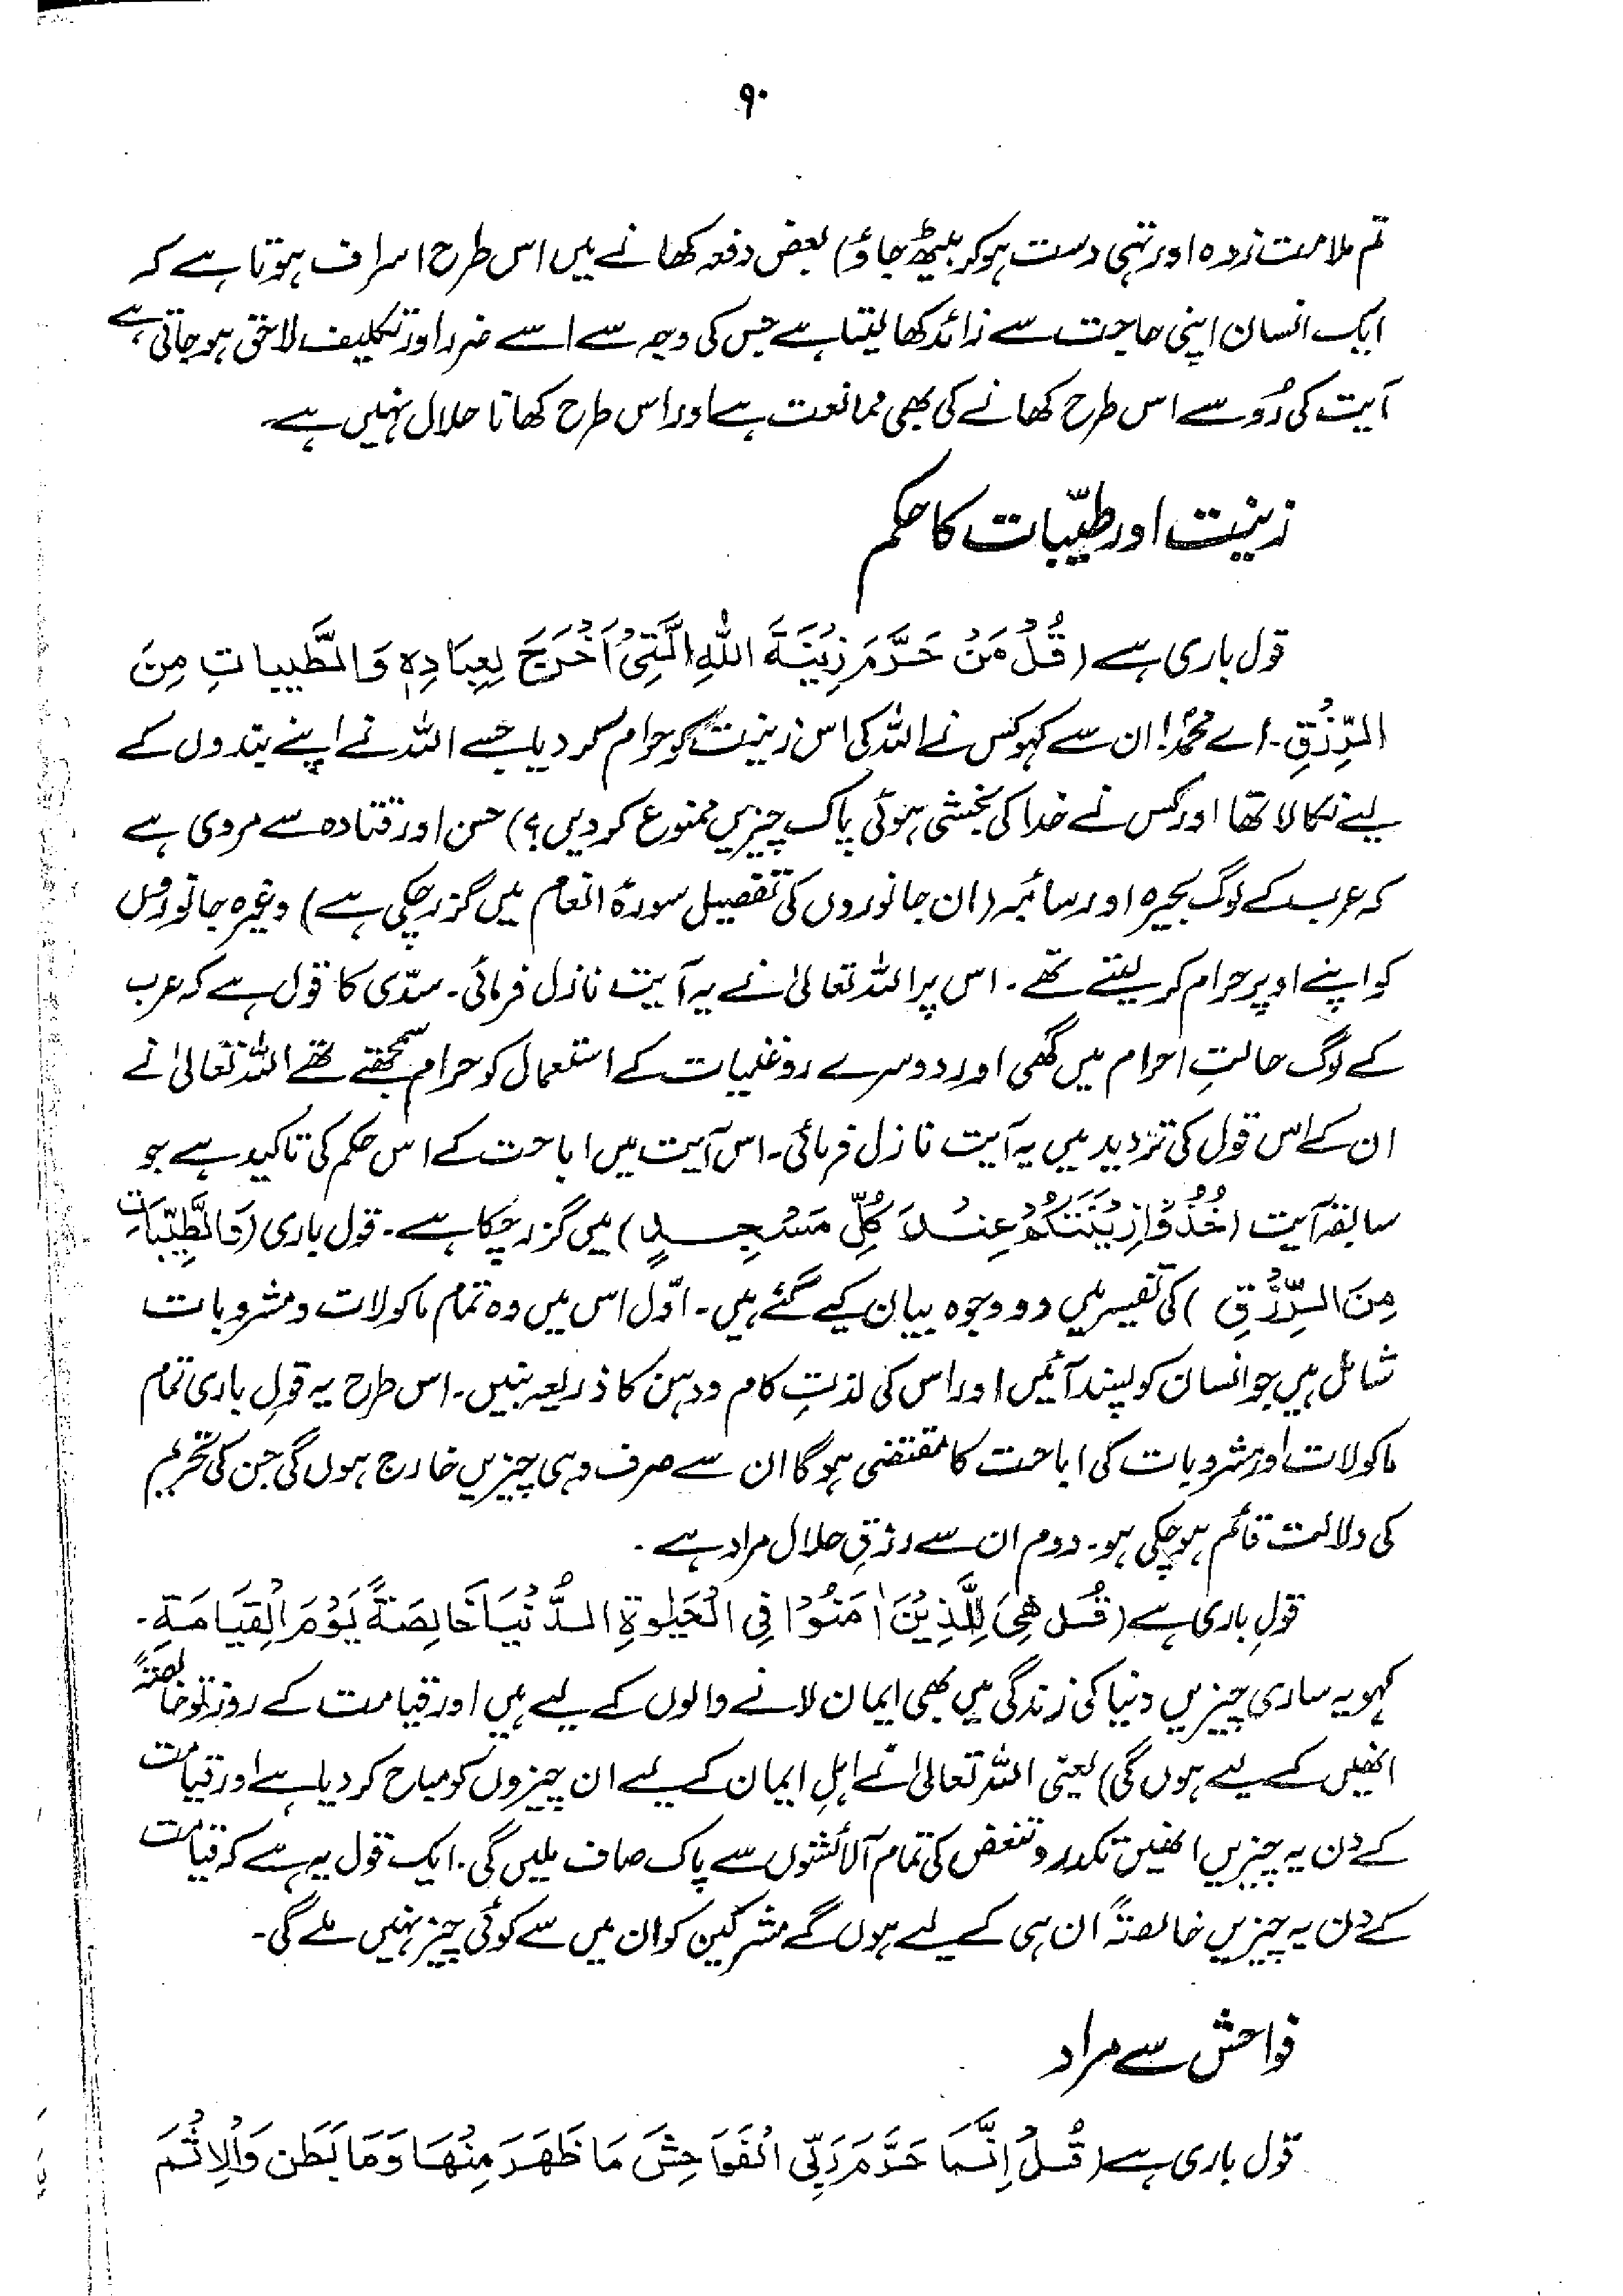 ۹۰
تم ملامت زدہ اور تہی دست ہو کر بیٹھ جاؤ) بعض دفعہ کھانے میں اس طرح اسراف ہوتا ہے کہ
ایک انسان اپنی حاجت سے زائد کھا لیتا ہے جس کی وجہ سے اسے ضرر اور تکلیف لاحق ہو جاتی ہے،
آیت کی رُو سے اس طرح کھانے کی بھی ممانعت ہے اور اس طرح کھانا حلال نہیں ہے۔
زینت اور طیّبات کا حکم
قول باری ہے (قُلْ مَنْ حَرَّمَ زِيْنَةَ اللّٰهِ الَّتِيْ اَخْرَجَ لِعِبَادِهٖ وَالطَّيِّبَاتِ مِنَ
الرِّزْقِ۔ اے محمدؐ! ان سے کہو کس نے اللہ کی اس زینت کو حرام کر دیا جسے اللہ نے اپنے بندوں کے
لیے نکالا تھا اور کس نے خدا کی بخشی ہوئی پاک چیزیں ممنوع کر دیں؟) حسن اور قتادہ سے مروی ہے
کہ عرب کے لوگ بحیرہ اور سائبہ (ان جانوروں کی تفصیل سورۂ انعام میں گزر چکی ہے) وغیرہ جانوروں
کو اپنے اوپر حرام کر لیتے تھے۔ اس پر اللہ تعالیٰ نے یہ آیت نازل فرمائی۔ سدّی کا قول ہے کہ عرب
کے لوگ حالتِ احرام میں گھی اور دوسرے روغنیات کے استعمال کو حرام سمجھتے تھے اللہ تعالیٰ نے
ان کے اس قول کی تردید میں یہ آیت نازل فرمائی۔ اس آیت میں اباحت کے اس حکم کی تاکید ہے جو
سابقہ آیت (خُذُوْا زِيْنَتَكُمْ عِنْدَ كُلِّ مَسْجِدٍ) میں گزر چکا ہے۔ قول باری (وَالطَّيِّبَاتِ
مِنَ الرِّزْقِ) کی تفسیر میں دو وجوہ بیان کیے گئے ہیں۔ اوّل اس میں وہ تمام ماکولات و مشروبات
شامل ہیں جو انسان کو پسند آئیں اور اس کی لذتِ کام و دہن کا ذریعہ بنیں۔ اس طرح یہ قولِ باری تمام
ماکولات اور مشروبات کی اباحت کا مقتضی ہوگا ان سے صرف وہی چیزیں خارج ہوں گی جن کی تحریم
کی دلالت قائم ہو چکی ہو۔ دوم ان سے رزقِ حلال مراد ہے۔
قولِ باری ہے (قُل هِيَ لِلَّذِيْنَ اٰمَنُوْا فِي الْحَيٰوةِ الدُّنْيَا خَالِصَةً يَوْمَ الْقِيَامَةِ۔
کہو یہ ساری چیزیں دنیا کی زندگی میں بھی ایمان لانے والوں کے لیے ہیں اور قیامت کے روز تو خالصتہً
انھیں کے لیے ہوں گی) یعنی اللہ تعالیٰ نے اہلِ ایمان کے لیے ان چیزوں کو مباح کر دیا ہے اور قیامت
کے دن یہ چیزیں انھیں تکدر و تنغض کی تمام آلائشوں سے پاک صاف ملیں گی۔ ایک قول یہ ہے کہ قیامت
کے دن یہ چیزیں خالصتہً ان ہی کے لیے ہوں گے مشرکین کو ان میں سے کوئی چیز نہیں ملے گی۔
فواحش سے مراد
قول باری ہے (قُلْ اِنَّمَا حَرَّمَ رَبِّيَ الْفَوَاحِشَ مَا ظَهَرَ مِنْهَا وَمَا بَطَن وَالْاِثْمَ